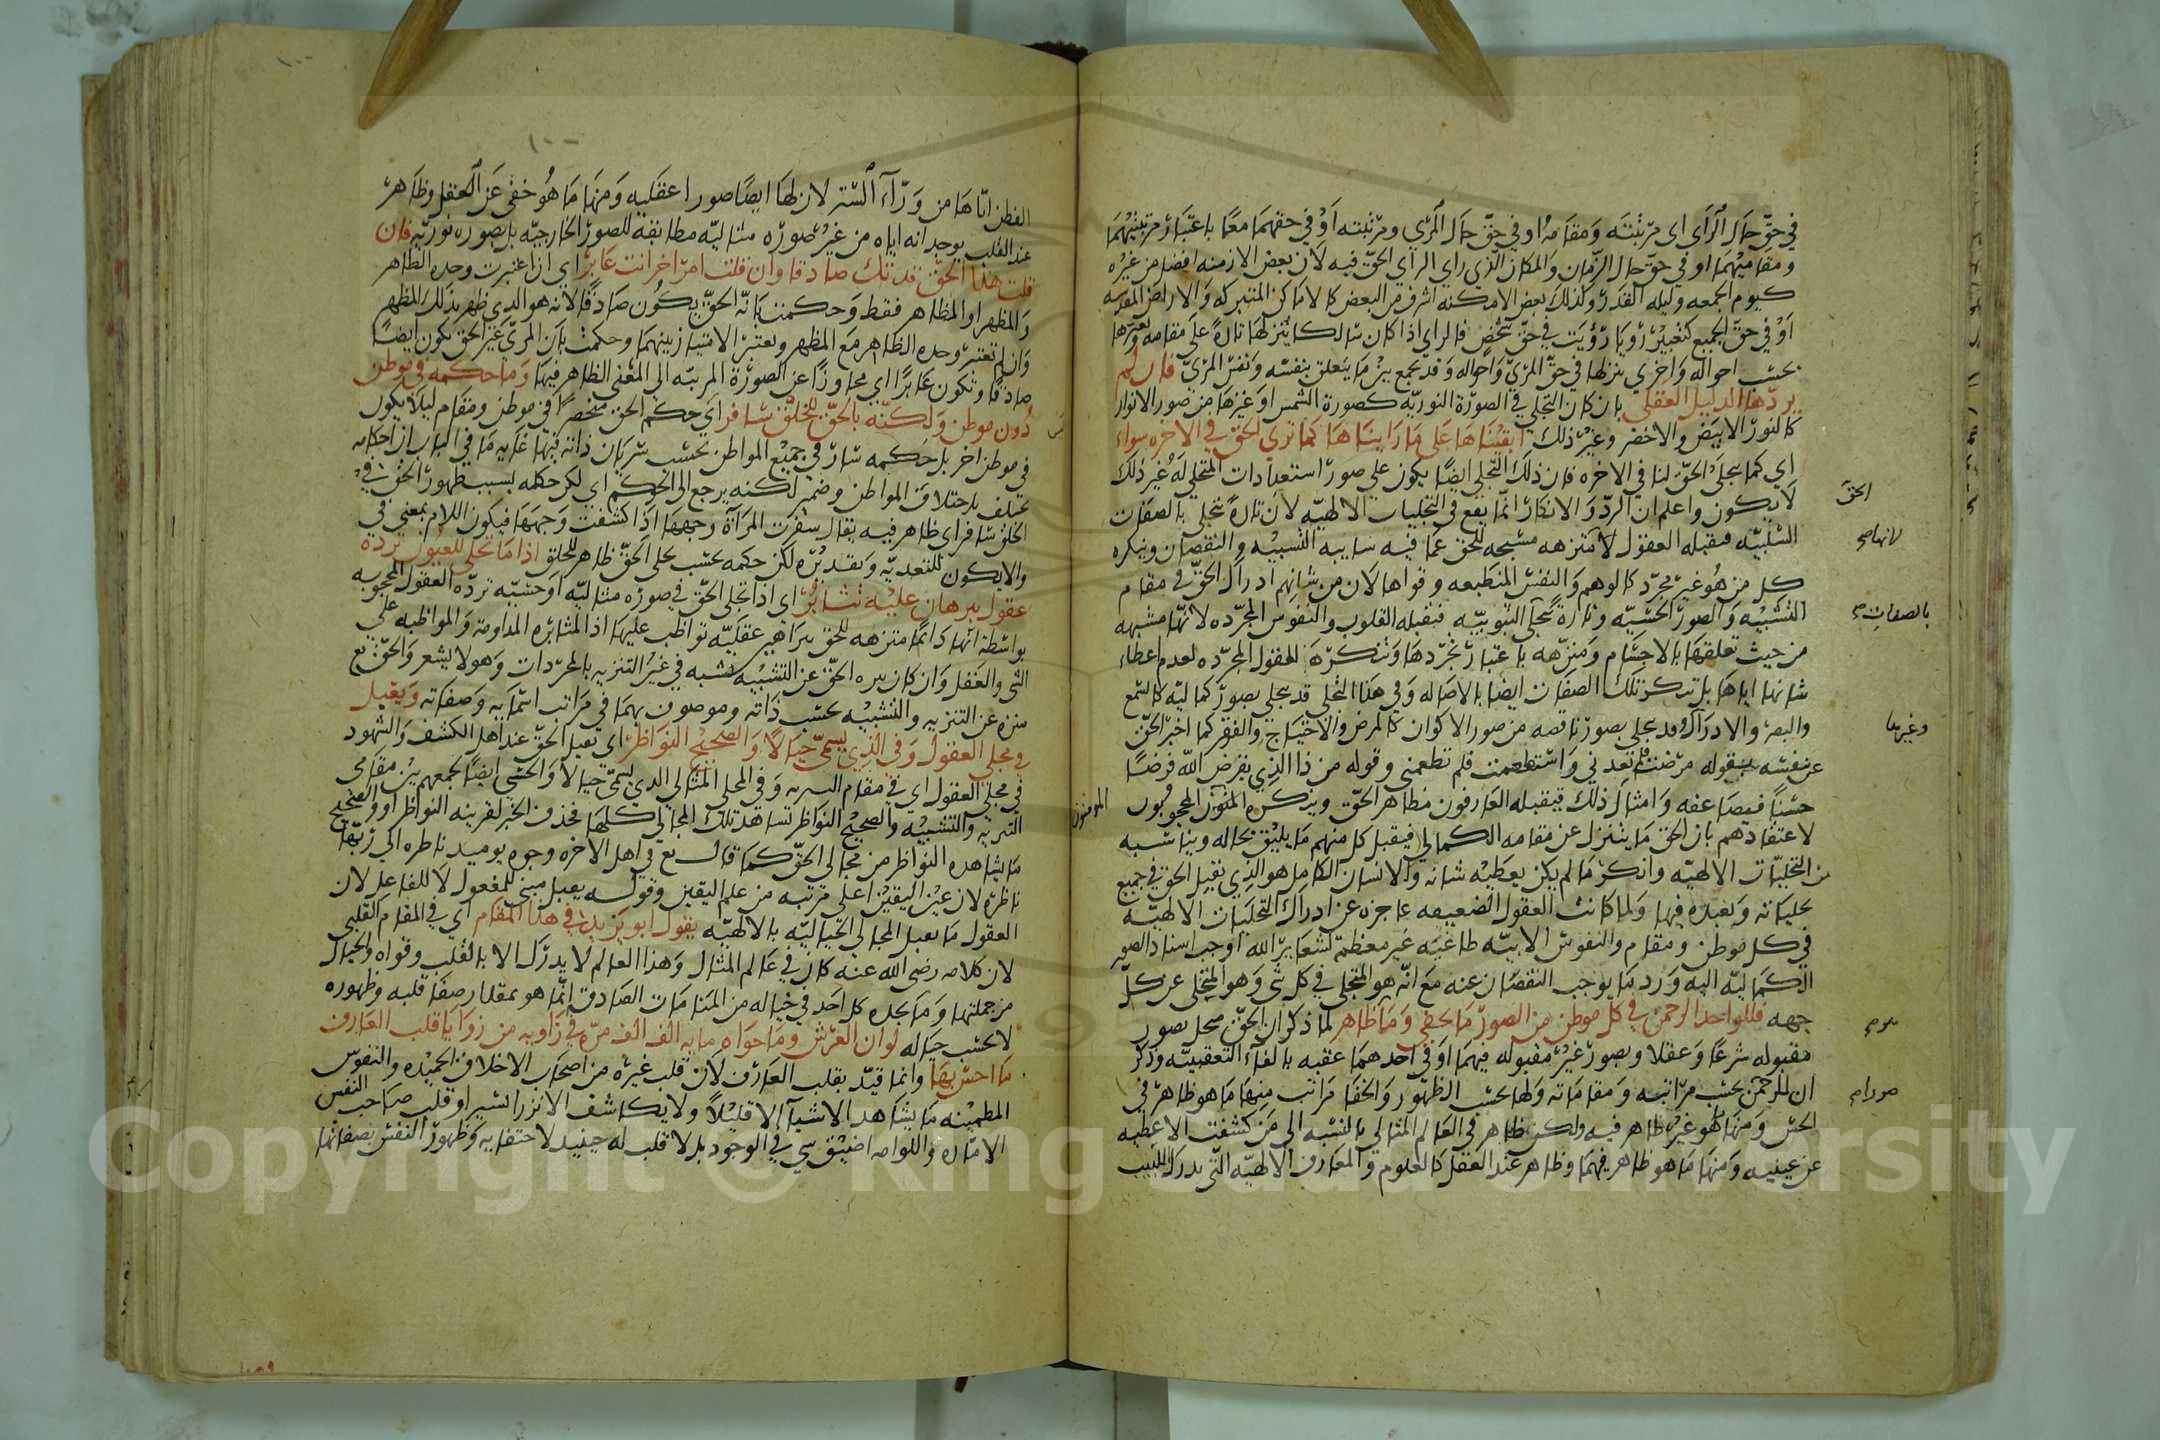 في حقّ حال الرآي اي مرتبته ومقامه او في حقّ حال المرئي ومرتبته او في حقهما معًا باعتبار مرتبتيهما
ومقاميهما او في حقّ حال الزمان والمكان الذي راي الرآي الحقّ فيه لان بعض الازمنه افضل من غيره
كيوم الجمعه وليله القدر وكذلك بعض الامكنه اشرف من البعض كالاماكن المتبركه والاراضي المقدسه
او في حق الجميع كتعبير رؤيا رؤيت في حقّ شخص فالراي اذا كان سالكا ينزلها تارةً على مقامه ويعبرها
بحسب احواله واخري ينزلها في حقّ المرئيّ واحواله وقد يجمع بين ما يتعلق بنفسه وبنفس المرئيّ فان لم
يردّها الدليل العقلي بان كان التجلي في الصورة النوريّه كصورة الشمس او غيرها من صور الانوار
كالنور الابيض والاخضر وغير ذلك ابقيناها على ما رايناها كما نري الحقّ في الاخره سواء
اي كما يتجلى الحقّ لنا في الاخره فان ذلك التجلي ايضًا يكون على صور استعدادات المتجلي له غير ذلك
لا يكون واعلم ان الردّ والانكار انّما يقع في التجليات الالهيّه لان تارةً يتجلى بالصفات
السّلبيّه فيقبله العقول لا منزهه مسبحه للحق عمّا فيه شايبه التشبيه والنقصان وينكره
كل من هو غير مجرّد كالوهم والنفس المنطبعه وقواها لان من شانهم ادراك الحقّ في مقام
التشبيه والصور الحسّيّه وتارةً يتجلى الثبوتيّه فيقبله القلوب والنفوس المجرّده لانّها مشبهه
من حيث تعلقها بالاجسام ومنزّهه باعتبار تجرّدها وتنكرّه العقول المجرّده لعدم اعطاء
شانها اياها بل تنكر تلك الصفات ايضًا بالاصاله وفي هذا التجلي قد يتجلى بصور كماليّه كالسمع
والبصر والادراك وقد يتجلى بصور ناقصه من صور الاكوان كالمرض والاحتياج والفقر كما اخبر الحقّ
عن نفسه بقوله مرضت فلم تعدني واستطعمت فلم تطعمني وقوله من ذا الذي يقرض الله قرضًا
حسنًا فيضاعفه وامثال ذلك فيقبله العارفون مظاهر الحقّ وينكره المؤمنون المحجوبون
لاعتقادهم بان الحق ما يتنزل عن مقامه الكمالي فيقبل كل منهم ما يليق بحاله ويناسبه
من التجليّات الالهيّه وانكر ما لم يكن يعطيه شانه والانسان الكامل هو الذي يقبل الحق في جميع
تجلياته ويعبده فيها ولما كانت العقول الضعيفه عاجزه عن ادراك التجليات الالهيّه
في كل موطن ومقام والنفوس الابيّه طاغيه غير معظمه لشعاير الله اوجب اسناد الصور
الكماليّه اليه ورد ما يوجب النقصان عنه مع انّه هو المتجلي في كل شي وهو المتخلى عن كلّ
جهه فللواحد الرحمن في كل موطن من الصور ما يخفى وما ظاهر لما ذكر ان الحقّ يتجلى بصور
مقبوله شرعًا وعقلا وبصور غير مقبوله فيهما او في احدهما عقبه بالفاء التعقبيّه وذكر
ان للرحمن بحسب مراتبه ومقاماته ولها بحسب الظهور والخفا مراتب منها ما هو ظاهر في
الحسّ ومنها ما هو غير ظاهر فيه ولكن ظاهر في العالم المثالي بالنسبه الى من كشفت الاغطيه
عن عينيه ومنها ما هو ظاهر فيهما وظاهر عند العقل كالعلوم والمعارف الالهيّه الّتي يدرك اللبيب
الحقّ
لانها
بالصفات
وغيرها
المؤمنون
صورا
١٠٠
الفطن اياها من ورآء الستر لان لها ايضًا صورا عقليه ومنها ما هو خفي عن العقل وظاهر
عند القلب بوجدانه اياه من غير صوره مثاليّه مطابقه للصور الخارجيّه بل بصوره نوريّه فان
قلت هذا الحقّ قد تك صادقا وان قلت امرًا اخر انت عابرٌ اي ان اعتبرت وحده الظاهر
والمظهر او المظاهر فقط وحكمت بانّه الحقّ يكون صادقًا لانه هو الذي ظهر بذلك المظهر
وان لم تعتبر وحده الظاهر مع المظهر وتعتبر الامتياز بينهما وحكمت بان المرئي غير الحق تكون ايضًا
صادقًا وتكون عابرًا اي مجاوزًا عن الصورة المرئيّه الى المعنى الظاهر فيها وما حكمه في موطن
دون موطن ولكنّه بالحقّ للخلق سافر اي حكم الحق منحصرًا في موطن ومقام ليلا يكون
في موطن اخر بل حكمه سار في جميع المواطن بحسب سريان ذاته فيها غايه ما في الباب ان احكامه
يختلف باختلاف المواطن وضمير لكنه يرجع الى الحكم اي لكن حكمه بسبب ظهور الحق في
الخلق سافر اي ظاهر فيه يقال سفرت المرآة وجهها اذا كشفت وجهها فيكون اللام بمعنى في
والا يكون للتعديّه وتقديره لكن حكمه بحسب تجلى الحقّ ظاهر للخلق اذا ما تجلى للعيون تردّه
عقول ببرهان عليه تثابرُ اي اذا تجلى الحقّ في صوره مثاليّه او حسّيّه تردّه العقول المحجوبه
بواسطه انّها دائمًا منزهه للحق ببراهين عقليّه تواظب عليها اذ المثابره المداومة والمواظبه على
الشي والعقل وان كان ينزه الحقّ عن التشبيه يشبه في غير التنزيه بالمجرّدات وهو لا يشعر والحقّ تع
منزه عن التنزيه والتشبيه بحسب ذاته وموصوف بهما في مراتب اسمآيه وصفاته ويقبل
في مجلى العقول وفي الّذي يسمّى خيالًا والصحيح النواظرُ اي يقبل الحقّ عند اهل الكشف والشهود
في مجلى العقول اي في مقام التنزيه وفي المجلى المثالي الذي يسمّى خيالا والحسّي ايضًا لجمعهم بين مقامي
التنزيه والتشبيه والصحيح النواظر تشاهد تلك المجالي كلها فحذف الخبر لقرينه النواظر او والصحيح
ما يشاهده النواظر من مجالي الحقّ كما قال تع في اهل الاخره وجوه يوميذ ناضره الى ربّها
ناظره لان عين اليقين اعلى مرتبه من علم اليقين وقوله يقبل مبني للمفعول لا للفاعل لان
العقول ما يقبل المجالي الخياليّه بالالهيّه يقول ابو يزيد في هذا المقام اي في المقام القلبي
لان كلامه رضي الله عنه كان في عالم المثال وهذا العالم لا يدرّك الا بالقلب وقواه والخيال
من جملتها وما يجده كل احد في خياله من المنامات الصادق انّما هو بمقدار صفا قلبه وظهوره
لا بحسب خياله لو ان العرش وما حواه مايه الف الف مرّه في زاويه من زوايا قلب العارف
ما احسّ بها وانما قيّد بقلب العارف لان قلب غيره من اصحاب الاخلاق الحميده والنفوس
المطمينه ما يشاهد الاشيآ الا قليلًا ولا يكاشف الا نزرا يسيرا وقلب صاحب النفس
الامّاره واللوامه اضيق شي في الوجود بل لا قلب له حينيذ لاختفايه وظهور النفس بصفاتها
Copyright © King Saud University